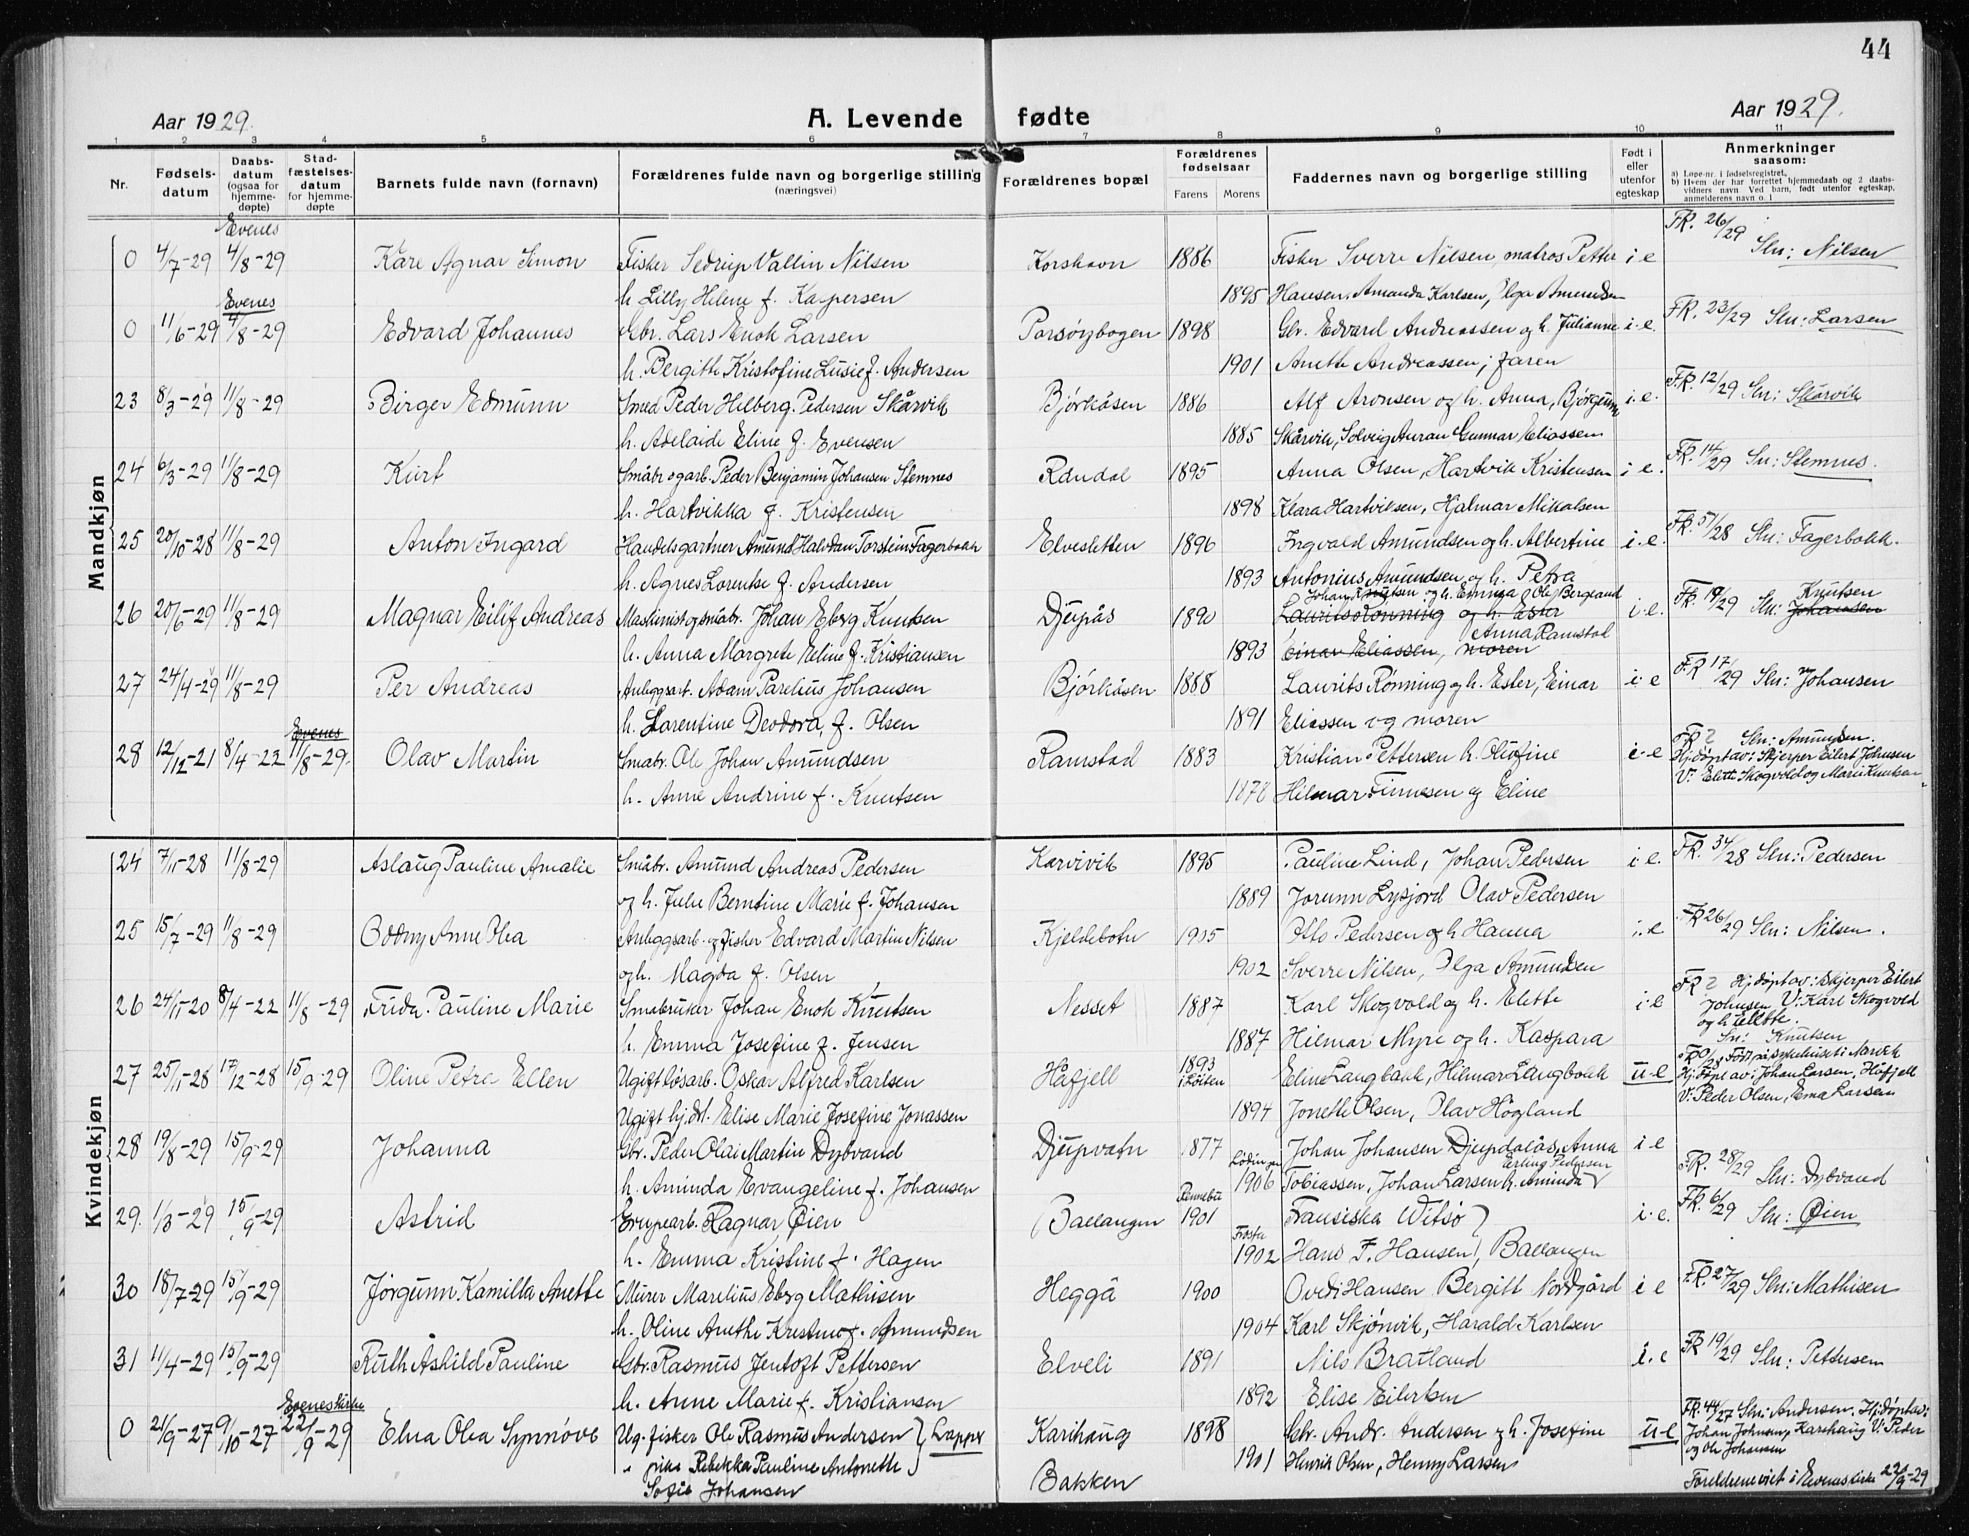 44
Aar 1929. A. Levende fødte Aar 1929.
1 2 3 4 5 6 7 8 9 10 11
Nr. Fødselsdatum Daabsdatum (ogsaa for hjemmedøpte) Stadfæstelsesdatum for hjemmedøpte Barnets fulde navn (fornavn) Forældrenes fulde navn og borgerlige stilling (næringsvei) Forældrenes bopæl Forældrenes fødselsaar Farens Morens Faddernes navn og borgerlige stilling Født i eller utenfor egteskap Anmerkninger saasom:
a) Løpe-nr. i fødselsregistret.
b) Hvem der har forrettet hjemmedaab og 2 daabsvidners navn Ved barn, født utenfor egteskap, anmelderens navn o. l
Mandkjøn
Evenes
0 4/7-29 4/8-29 Kåre Agnar Simon Fisker Sedrup Vallin Nilsen Korshavn 1886 Fisker Sverre Nilsen, matros Petter i e FR. 26/29 Sln: Nilsen
h. Lilly Helene f. Kaspersen 1895 Hansen, Amanda Karlsen, Olga Amundsen
Evenes
0 11/6-29 4/8-29 Edvard Johannes Gbr. Lars Enok Larsen Porsøybogen 1898 Gbr. Edvard Andreassen og h. Julianne i-e. FR. 23/29 Sln: Larsen
h. Bergitte Kristofine Lusie f. Andersen 1901 Anette Andreassen, faren
23 8/3-29 11/8-29 Birger Edmunn Smed Peder Hilberg Pedersen Skårvik Bjørkåsen 1886 Alf Aronsen og h. Anna, Bjørgunn i-e. FR. 12/29 Sln: Skårvik
h. Adelaide Eline f. Evensen 1885 Skårvik, Solveig Auran Gunnar Eliassen
24 6/3-29 11/8-29 Kurt Småbr og arb. Peder Benjamin Johansen Stemnes Råndal 1895 Anna Olsen, Hartvik Kristensen i e. FR. 14/29 Sn: Stemnes.
h. Hartvikka f. Kristensen 1898 Klara Hartviksen, Hjalmar Mikalsen
25 20/10-28 11/8-29 Anton Ingard Handelsgartner Amund Halvdan Torstein Fagerbakk Elvesletten 1896 Ingvald Amundsen og h. Albertine i-e. FR. 57/28 Sln: Fagerbakk.
h. Agnes Lorentse f. Andersen 1893 Antonius Amundsen og h. Petra
26 20/6-29 11/8-29 Magnar Eilif Andreas Maskinist og småbr. Johan Eberg Knutsen Djupås 1890 Johan Knutsen og h. Emma, Ole Bergland Laurits Rønning og h. Ester i-e. FR. 19/29 Sln: Johansen Knutsen
h. Anna Margrete Eline f. Kristiansen 1893 Einar Eliassen, moren Anna Ramstad
27 24/4-29 11/8-29 Per Andreas Anleggsarb. Adam Parelius Johansen Bjørkåsen 1888 Laurits Rønning og h. Ester, Einar i-e FR 17/29 Sln: Johansen
h. Larentine Deodora, f. Olsen 1891 Eliassen og moren
Evenes
28 12/12-21 8/4-22 11/8-29. Olav Martin Småbr. Ole Johan Amundsen Ramstad 1883 Kristian Pettersen h. Olufine i-e FR ? Sln: Amundsen.
h. Anne Andrine f. Knutsen 1878 Hilmar Finnesen og Eline Hj.døpt av: Skjerper Eilert Johnsen
V: Elette Skogvold og Marie Knutsen
Kvindekjøn
24 7/11-28 11/8-29 Aslaug Pauline Amalie Småbr. Amund Andreas Pedersen Karivik 1895 Pauline Lind, Johan Pedersen i-e. FR. 34/28 Sln: Pedersen
og h. Julie Berntine Marie f. Johansen 1889 Jorunn Lysfjord Olav Pedersen
25 15/7-29 11/8-29 Oddny Anne Olea Anleggsarb. og fisker Edvard Martin Nilsen Kjeldebotn 1905 Otto Pedersen og h Hanna i.e FR 26/29 Sln: Nilsen.
og h. Magda f. Olsen 1902 Sverre Nilsen, Olga Amundsen
26 24/11-20 8/4-22 11/8-29 Frida Pauline Marie Småbruker Johan Enok Knutsen Nesset 1887 Karl Skogvold og h. Elette i-e FR ? Hj.døpt av: Skjerper Eilert Johnsen V: Karl Skogvold og h Elette.
h. Emma Josefine f. Jensen 1887 Hilmar Myre og h. Kaspara Sn: Knutsen
27 25/11-28 17/12-28 15/9-29 Oline Petra Ellen Ugift løsarb. Oskar Alfred Karlsen Håfjell 1893 i Löiten Eline Langbakk, Hilmar Langbakk u-e Født på sykehuset i Narvik
Hj.døpt av: Johan Larsen, Håfjell
Ugift hj.dt. Elise Marie Josefine Jonassen 1894 Jonette Olsen, Olav Högland V: Peder Olsen, Ema Larsen
28 19/8-29 15/9-29 Johanna Gbr. Peder Olai Martin Dybvand Djupvatn 1877 Johan Johansen Djupdalås, Anna i e FR. 28/29 Sln: Dybvand
h. Aminda Evangeline f. Johansen Lødingen 1906 Tobiassen, Johan Larsen h. Aminda Erling Pedersen
29. 1/3-29 15/9-29 Astrid Grupearb. Ragnar Øien Ballangen Rennebu 1901 Fransiska Witsø i-e. FR. 6/29 Sln: Øien
h. Emma Kristine f. Hagen Frosta 1902 Hans F. Hansen, Ballangen
30 18/7-29 15/9-29 Jørgunn Kamilla Anette Murer Marelius Eberg Mathisen Heggå 1900 Ovedi Hansen Bergitt Nordgård i e FR. 27/29 Sln: Mathisen
h. Oline Anethe Krestine f. Amundsen 1904 Karl Skjønvik, Harald Karlsen
31 11/4-29 15/9-29 Ruth Åshild Pauline Gbr. Rasmus Jentoft Pettersen Elveli 1891 Nils Bratland i.e FR 19/29 Sln: Pettersen
h. Anne Marie f. Kristiansen 1892 Elise Eilertsen
Eveneskirke
0 21/9-27 9/10-27 22/9-29 Elna Olea Synnøve Ug. fisker Ole Rasmus Andersen Lapper Karihaug 1898 Gbr. Andr. Andersen og h. Josefine u-e FR. 44/27 Sln: Andersen. Hj.døpt av:
" pike Rebekka Pauline Antonette Bakken 1901 Henrik Olsen, Henny Larsen Johan Johnsen, Karihaug V: Peder og Ole Johansen
Sofie Johansen Foreldrene viet i Evenes kirke 22/9-29